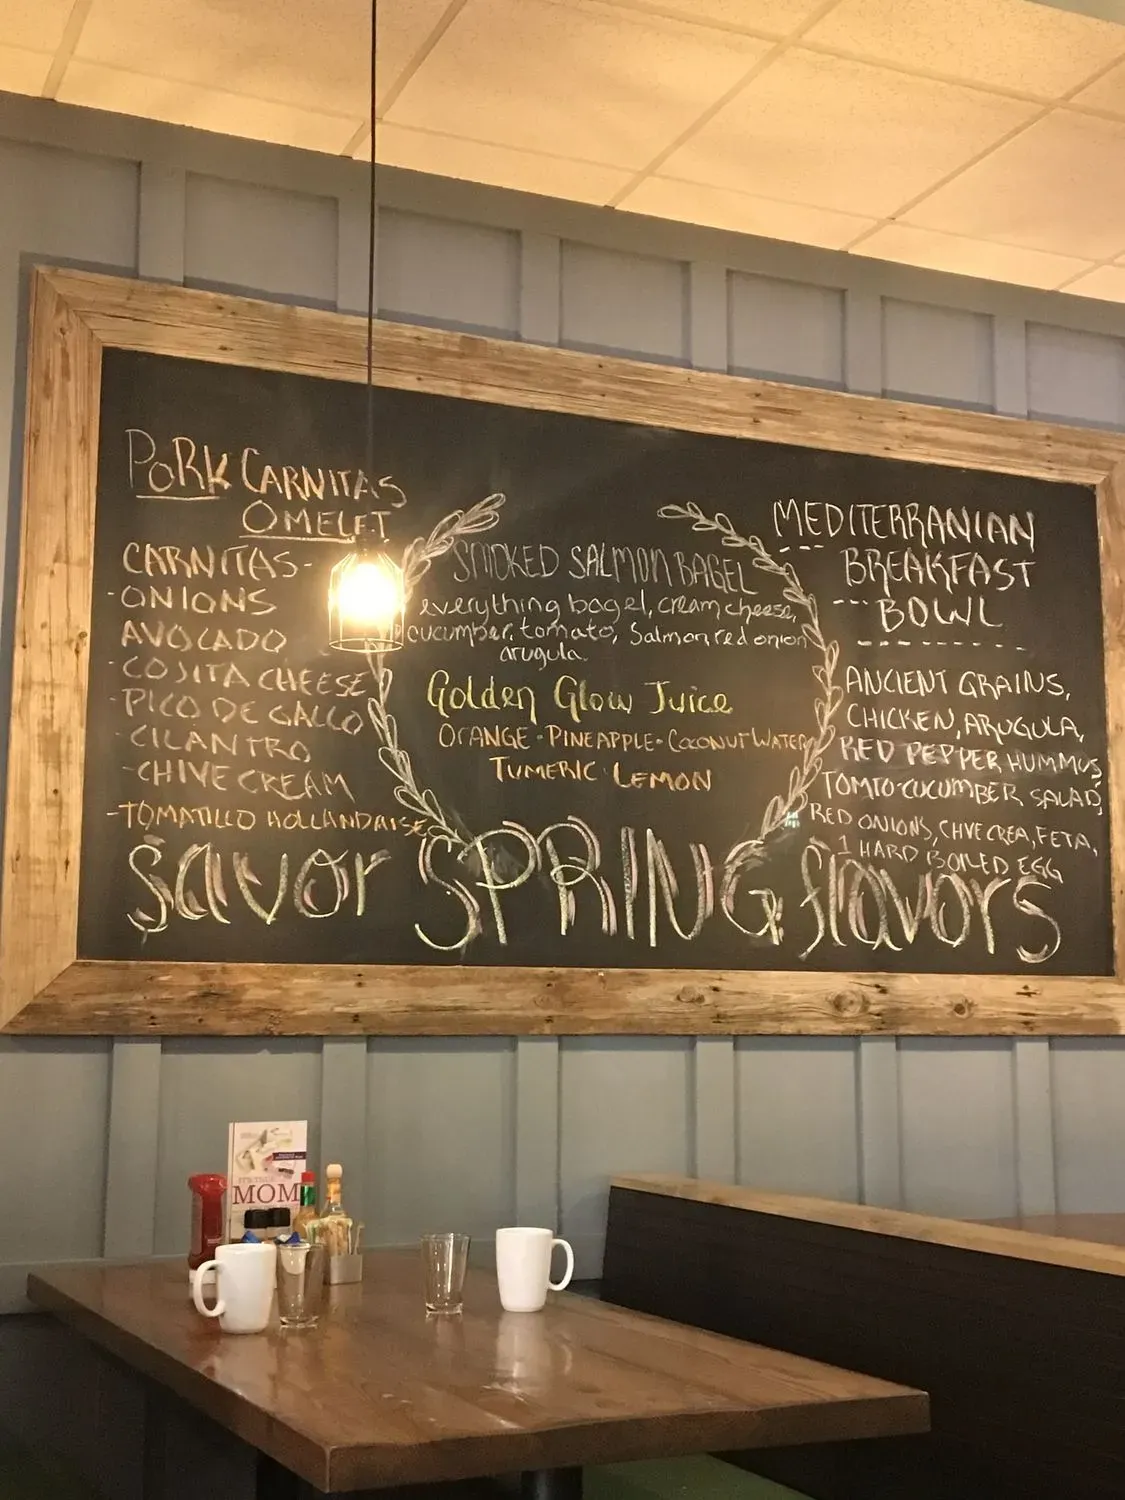 PORK CARNITAS
OMELET
CARNITAS-
-ONIONS
AVOCADO
-COJITA CHEESE
-PICO DE GALLO
-CILANTRO
-CHIVE CREAM
-TOMATILLO HOLLANDAISE
SMOKED SALMON BAGEL
everything bagel, cream cheese,
cucumber, tomato, Salmon, red onion
arugula.
Golden Glow Juice
ORANGE - PINEAPPLE - COCONUT WATER
TUMERIC - LEMON
MEDITERRANIAN
BREAKFAST
BOWL
ANCIENT GRAINS,
CHICKEN, ARUGULA,
RED PEPPER HUMMUS,
TOMTO-CUCUMBER SALAD,
RED ONIONS, CHVE CREA, FETA,
1 HARD BOILED EGG
savor SPRING flavors
MOM